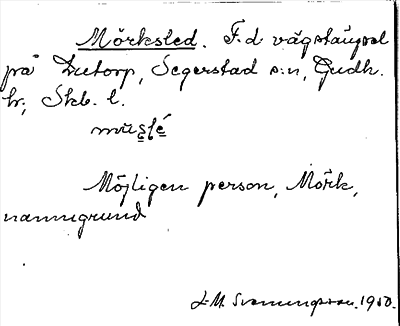 Mörksled. F.d. vägstäupol
på Dutorp, Segerstad s:n, Gudh.
hr; Skb. l.
Möjligen person, Mörk,
namngrund
L-M. Svenungsson. 1950.